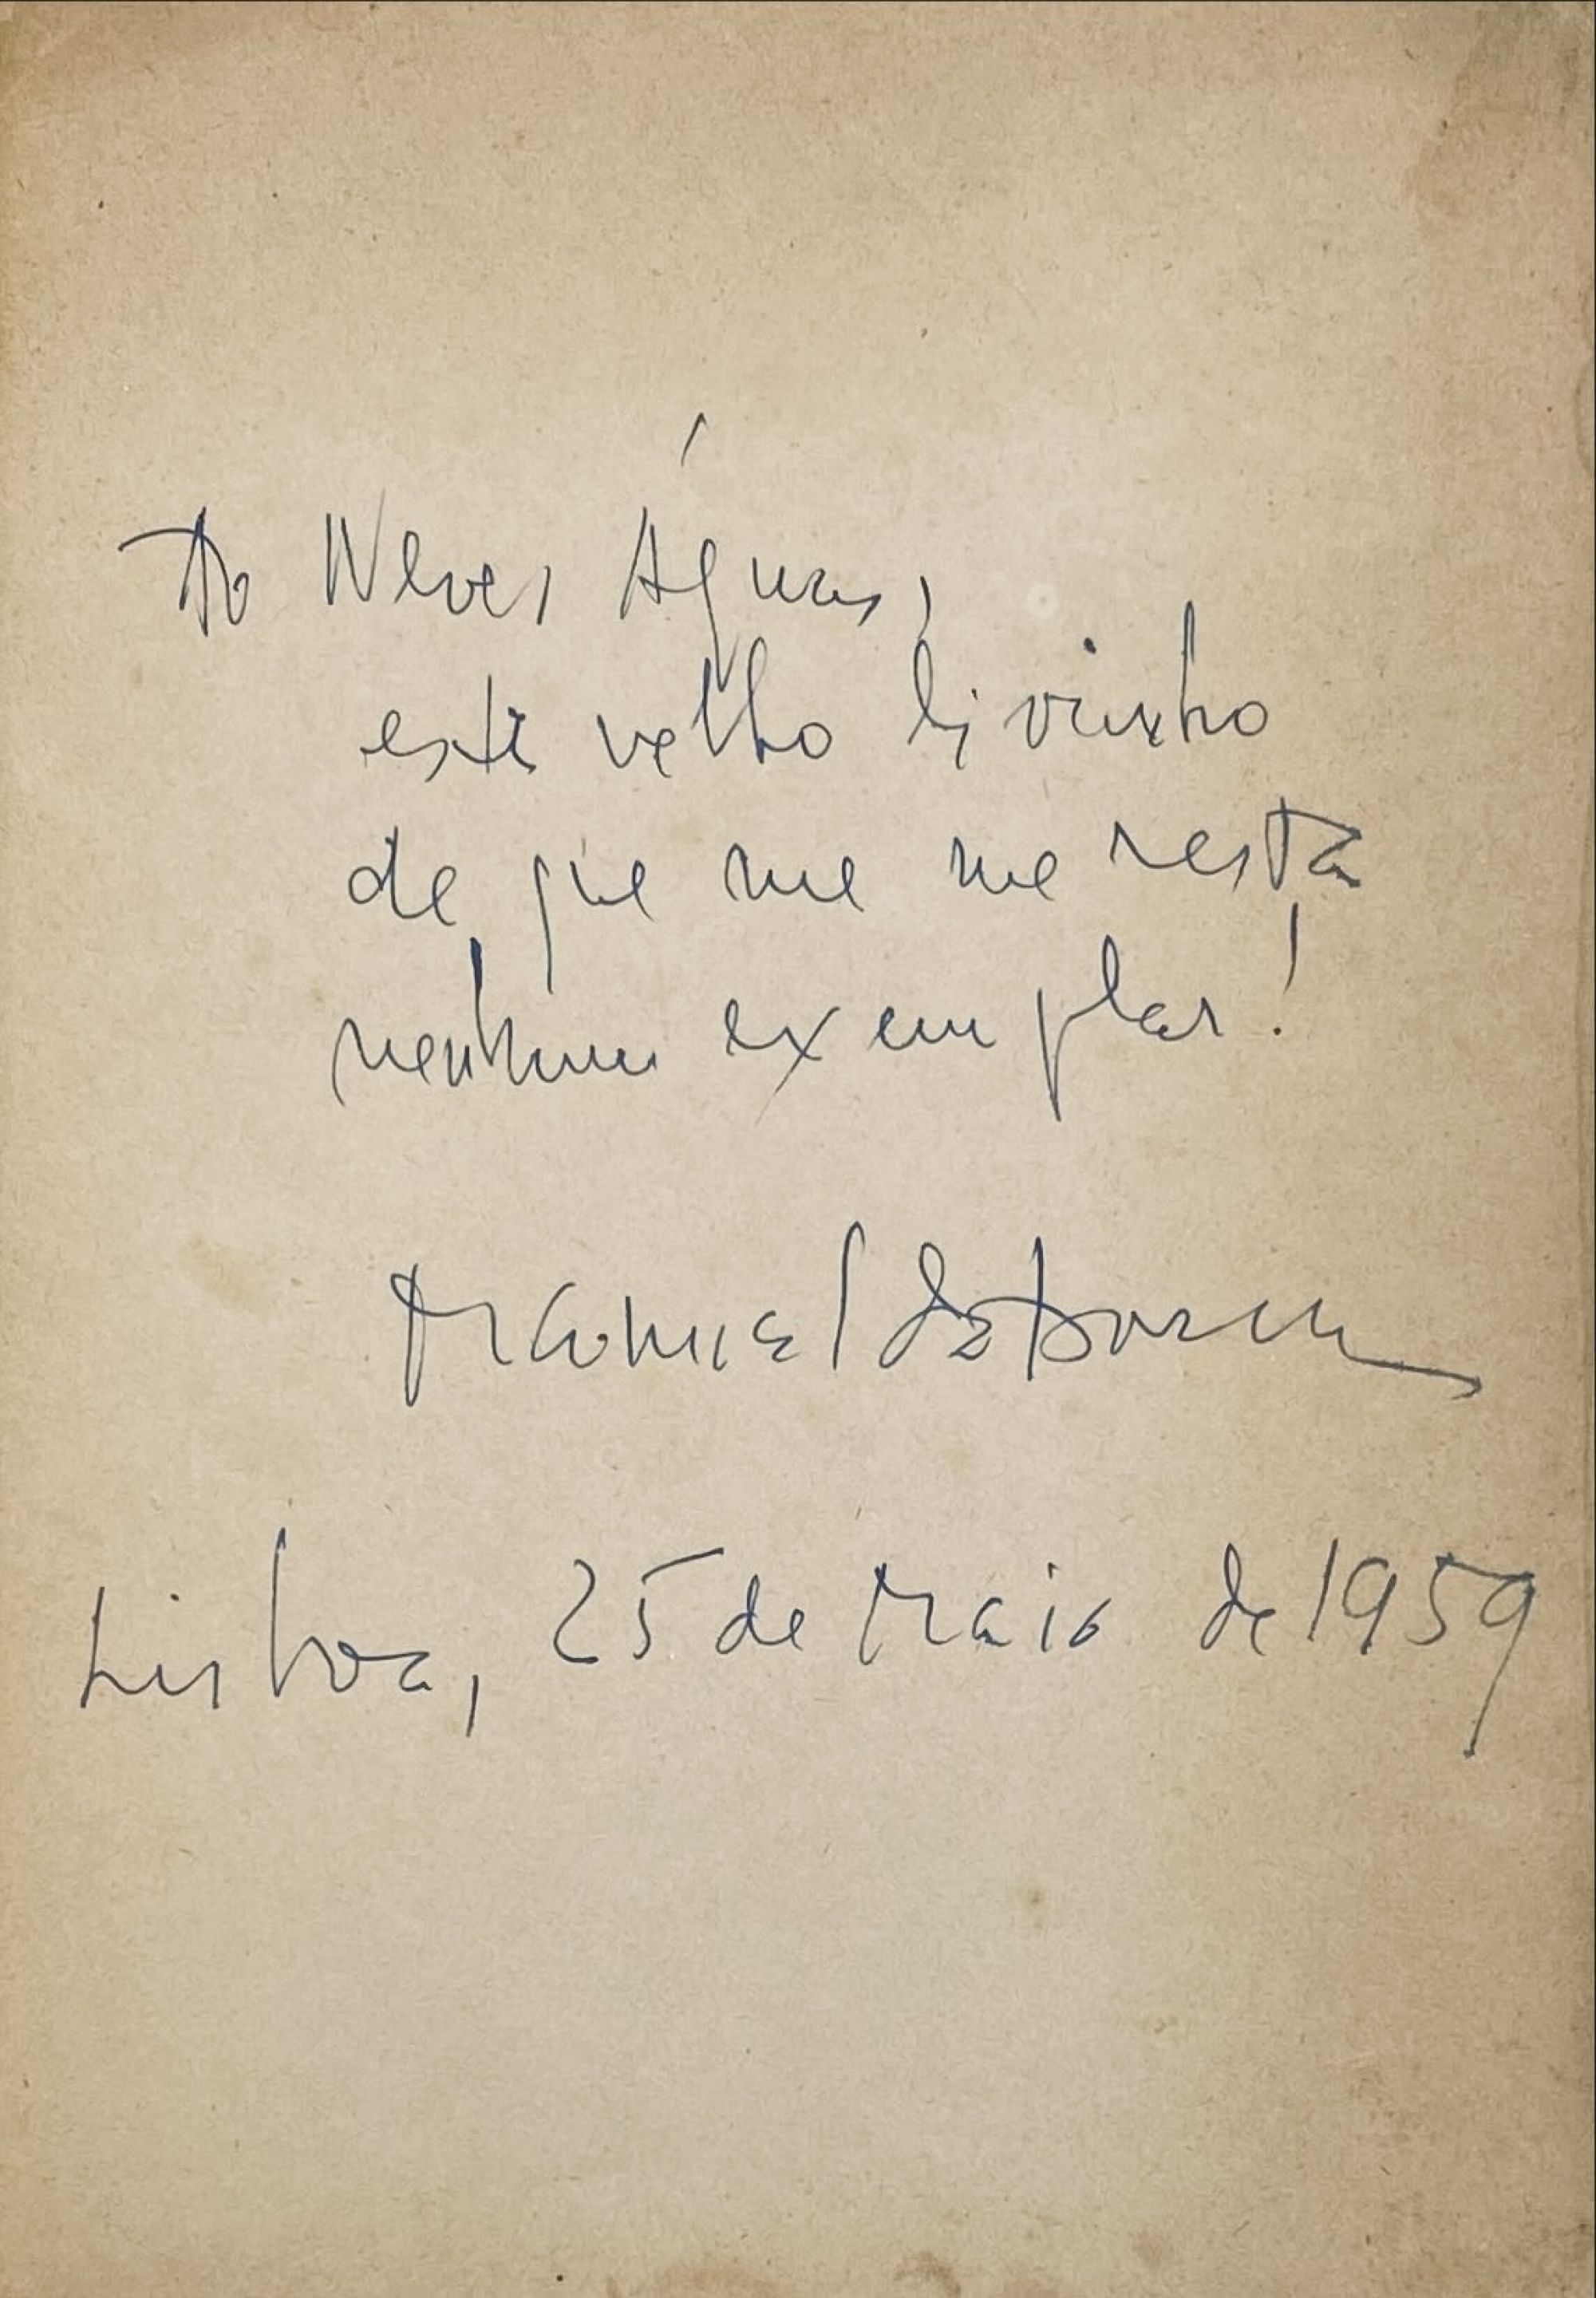 Ao Neves Águas,
este velho livrinho
de que me me resta
nenhum exemplar!
Manuel de
Lisboa, 25 de Maio de 1959